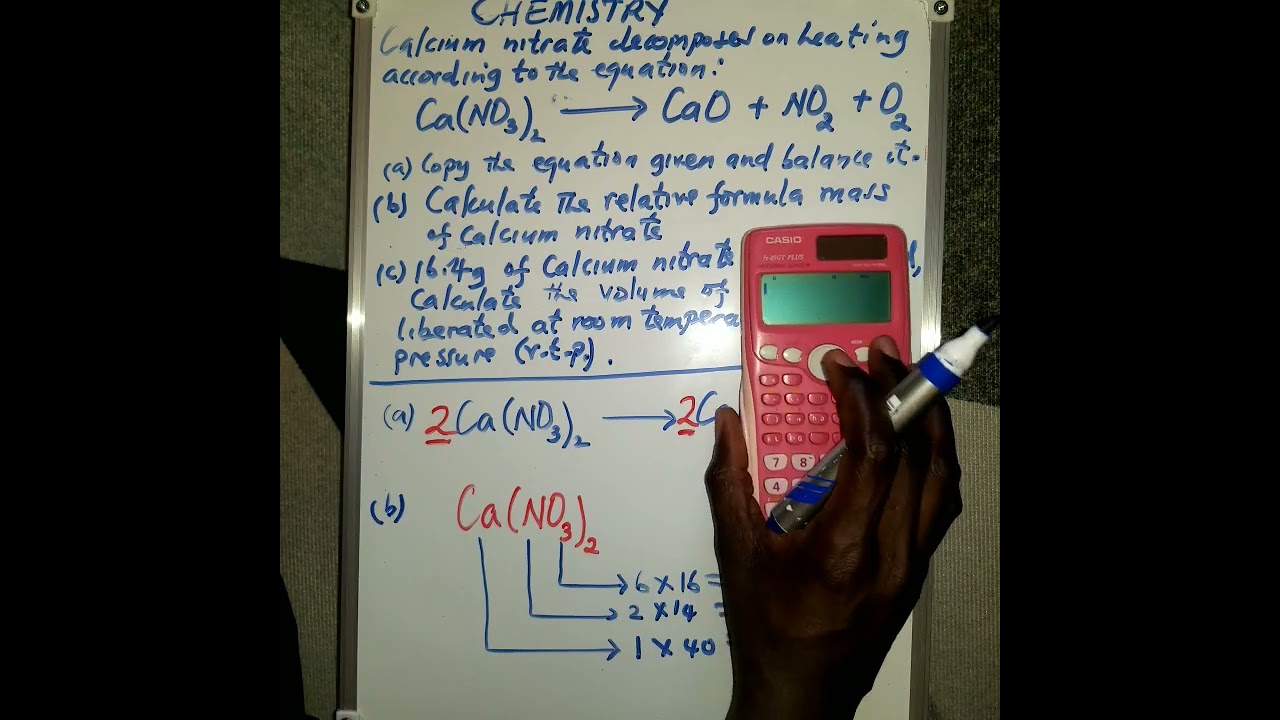 CHEMISTRY
Calcium nitrate decomposes on heating
according to the equation:
Ca(NO₃)₂ → CaO + NO₂ + O₂
(a) Copy the equation given and balance it.
(b) Calculate the relative formula mass
of Calcium nitrate
(c) 16.4g of Calcium nitrate
Calculate the volume of
liberated at room tempera
pressure (r.t.p.).
CASIO
fx-85GT PLUS
(a) 2Ca(NO₃)₂ → 2Ca
7 8
4
(b) Ca(NO₃)₂
6 × 16 =
2 × 14 =
1 × 40